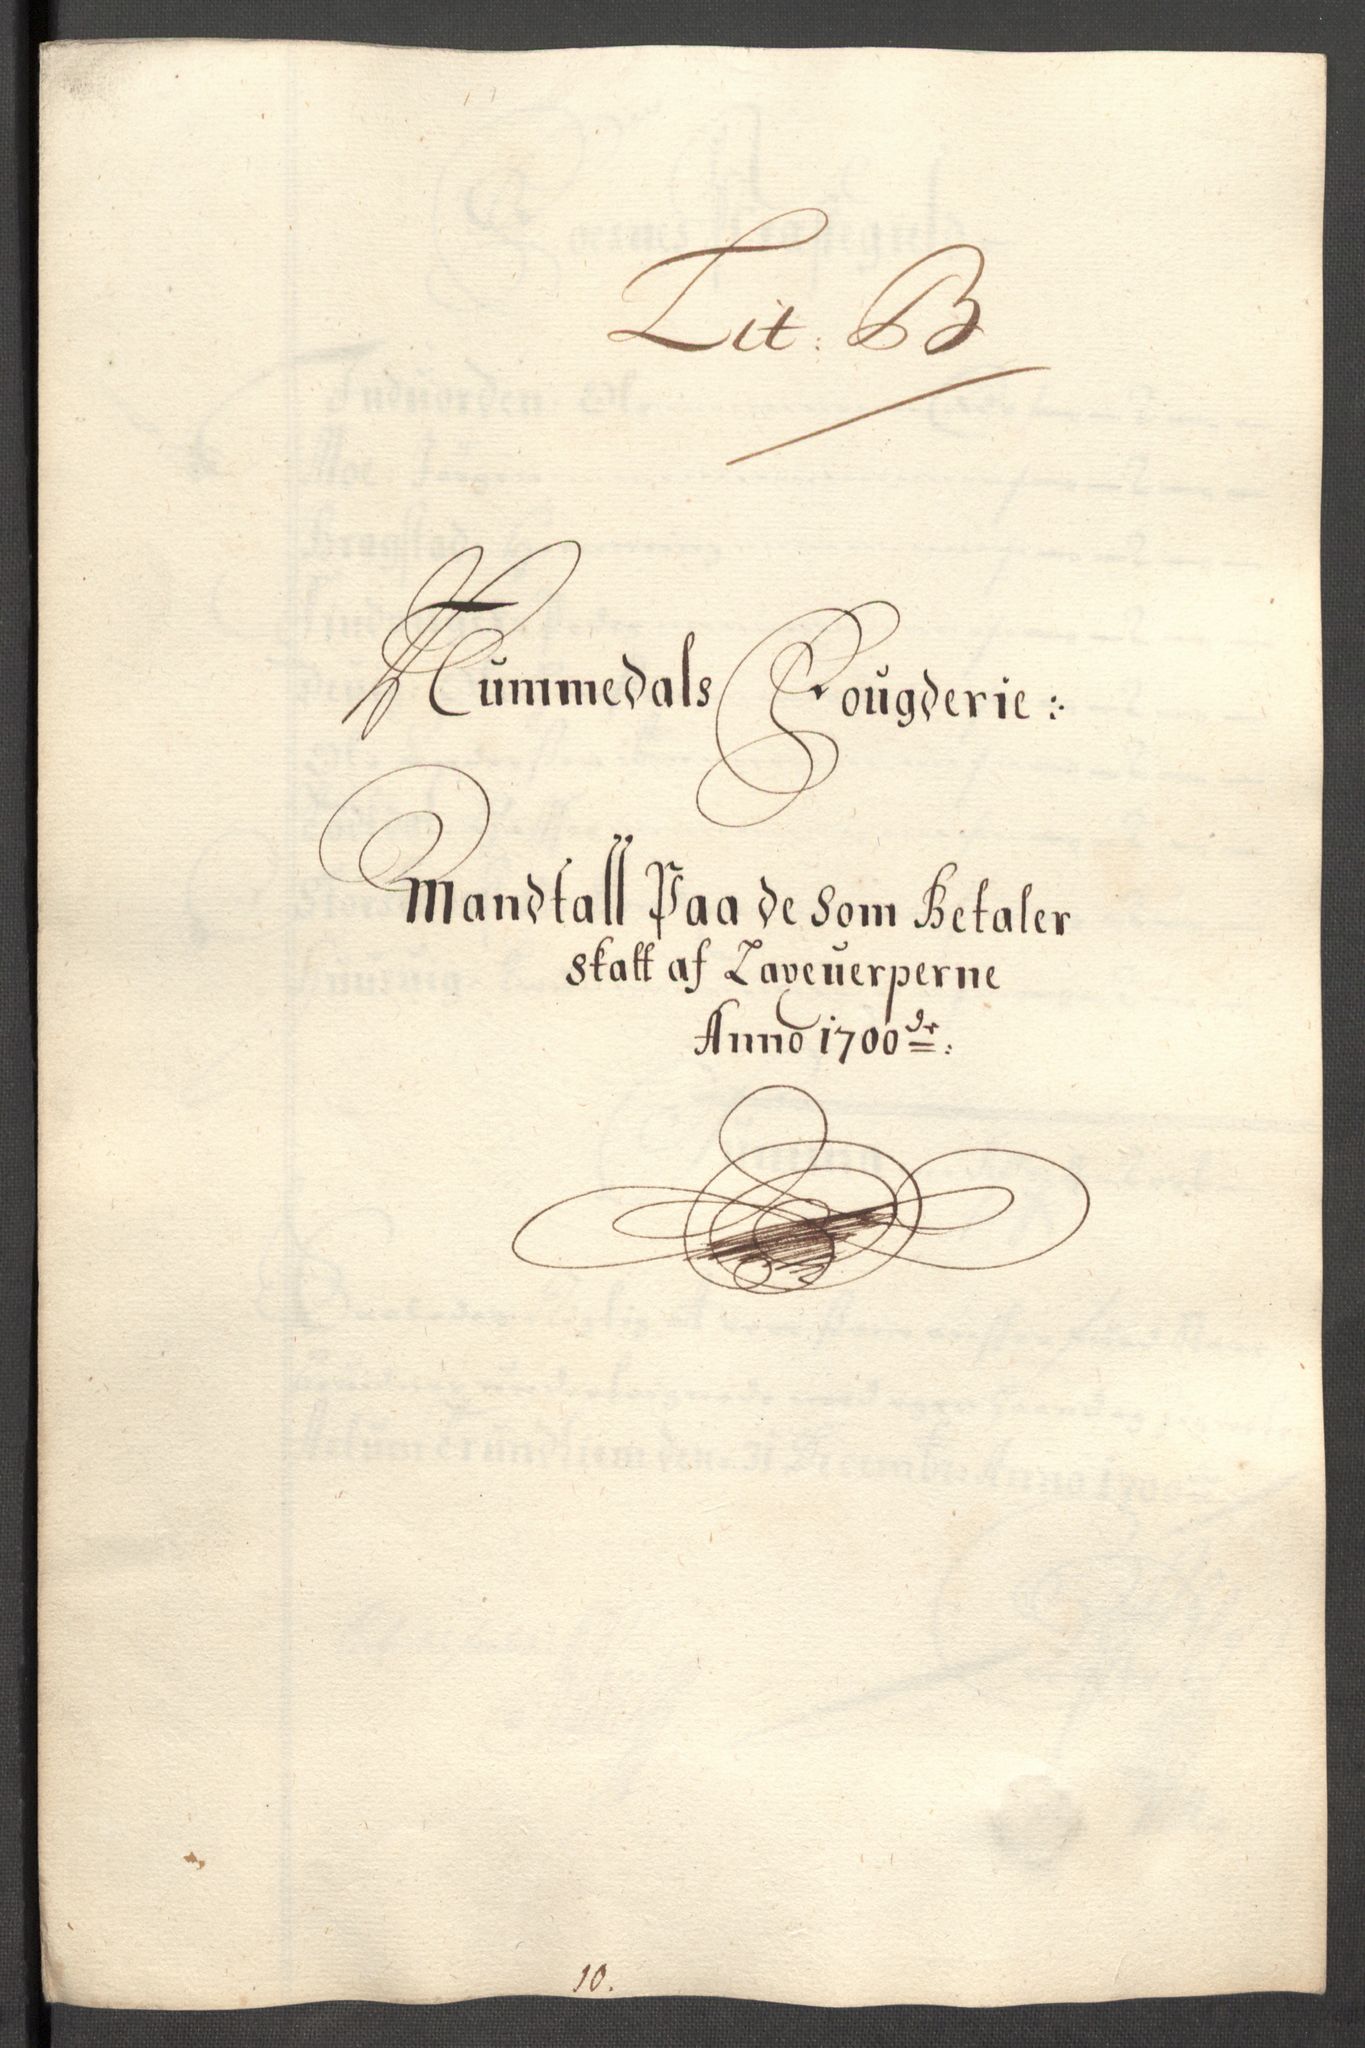 Lit: B
Nummedals Fougderie :
Mandtall Paa de som Betaler
skatt af Laxeuerperne
Anno 1700 dr:
10.